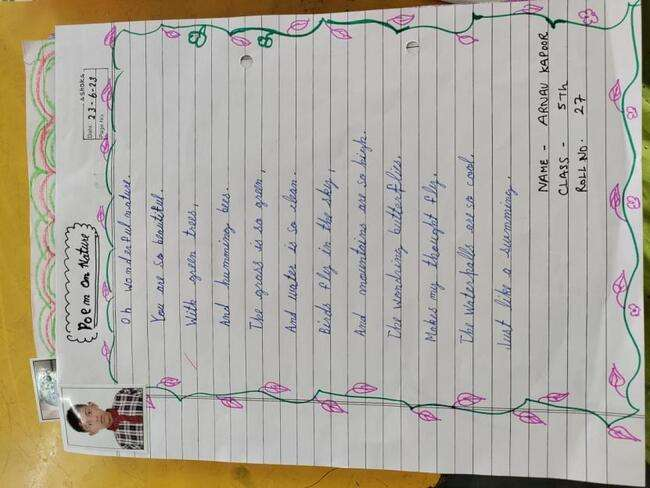 ashoka
Date: 23-6-23
Page No.
Poem on Nature
Oh wonderful nature.
You are so beautiful.
With green trees,
And humming bees.
The grass is so green,
And water is so clean.
Birds fly in the sky,
And mountains are so high.
The wondring butterflies.
Makes my thought fly.
The waterfalls are so cool.
Just like a swimming.
NAME - ARNAV KAPOOR
CLASS - 5Th
ROLL NO. 27